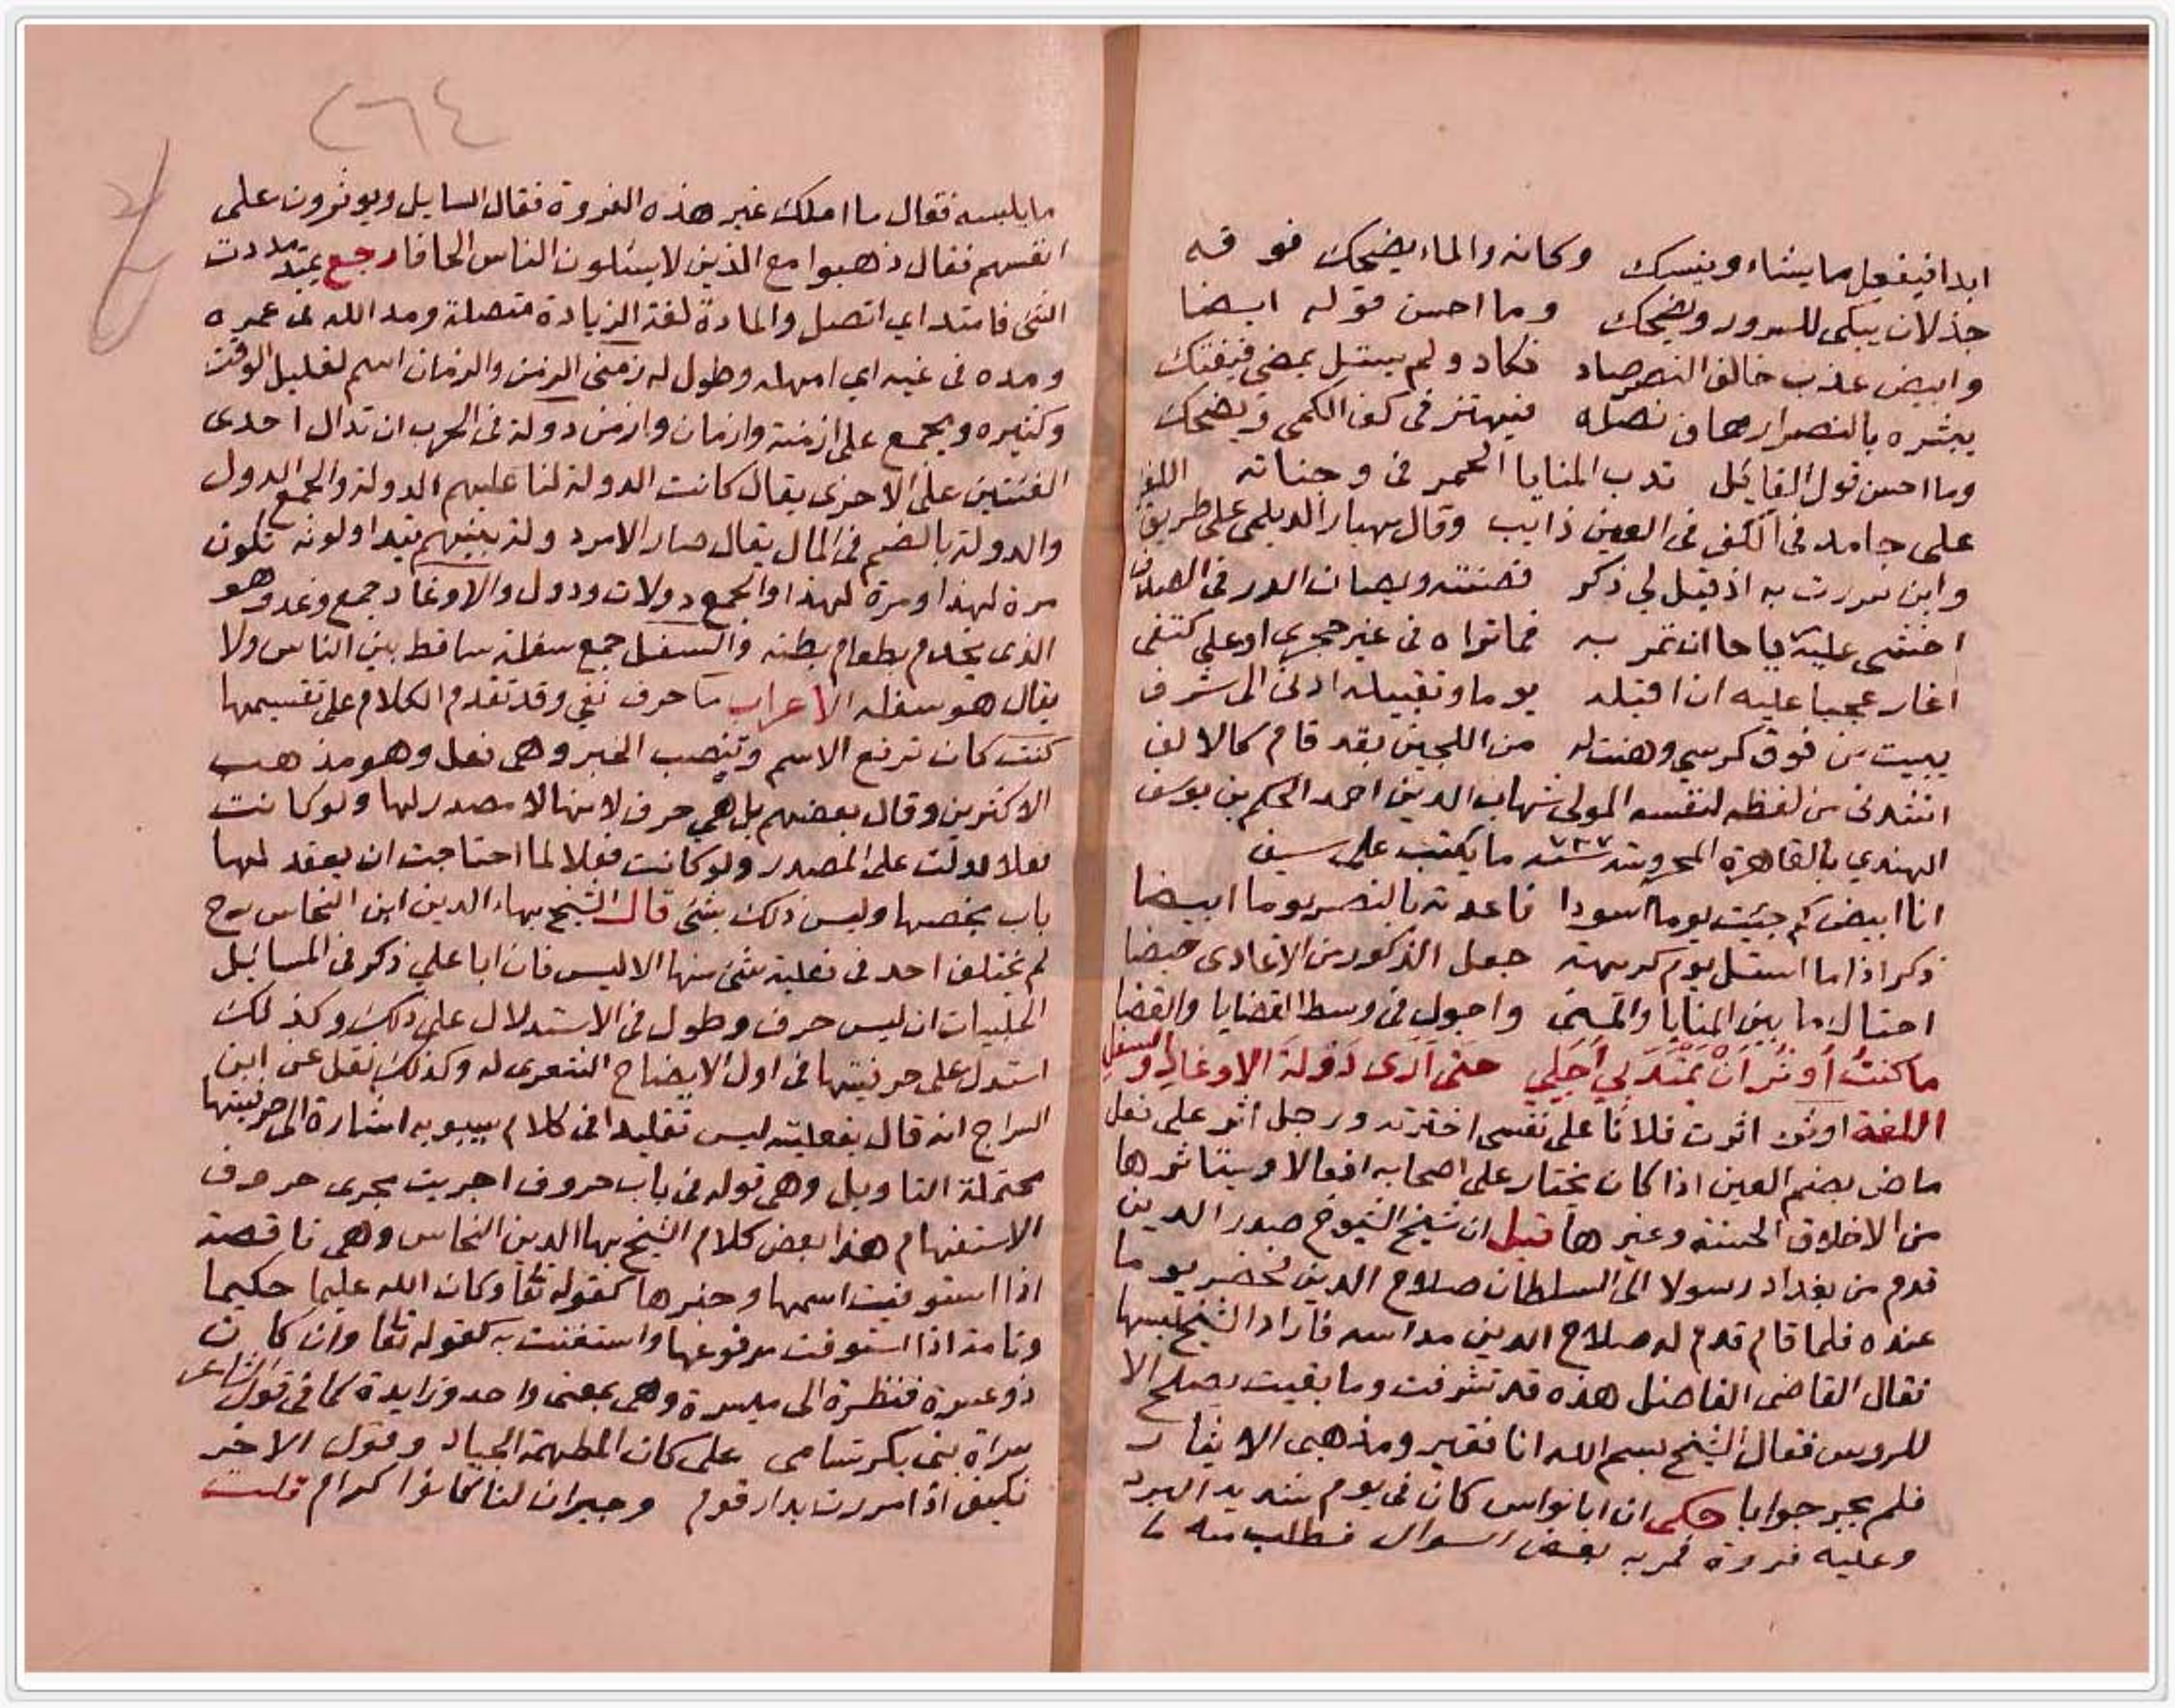 ابدا فيفعل ما يشاء وينسك وكانه والماء يضحك فوقه
جذلان يبكى للسرور ويضحك وما احسن قوله ايضا
وابيض عذب خالف النصر صاد فكاد ولم يستل يمضى فيفتك
يبشره بالنصر ارهاف نصله فيهتز فى كف الكمى ويضحك
وما احسن قول القايل تدب المنايا الحمر فى وجناته اللغز
على جامد فى الكف فى العين ذايب وقال مهيار الديلمى على طريق
وابن سررت به اذ قيل لي ذكر فصنته ويصان الدر فى الصدف
اخشى عليه رياحا ان تمر به فما تراه فى غير حجرى او على كتفى
اغار عجبا عليه ان اقبله يوما وتقبيله ادنى الى شرف
يبيت من فوق كرسي وهنت له من اللجين بقد قام كالالف
انشدنى من لفظه لنفسه المولى شهاب الدين احمد الحكم بن يوسف
الهندي بالقاهرة المحروسة سنة ٧٣٧ ما يكتب على سيف
انا ابيض كم جئت يوما اسودا فاعدته بالنصر يوما ابيضا
ذكر اذا ما استل يوم كريهة جعل الذكور من الاعادى حيضا
احتال ما بين المنايا والمنى واجول فى وسط القضايا والقضا
ما كنت اوثر ان يمتد بي اجلي حتى ارى دولة الاوغاد والسفل
اللغة اوثر اثرت فلانا على نفسى اخترته ورجل اثر على فعل
ماض بضم العين اذا كان يختار على اصحابه افعالا ويستاثرها
من الاخلاق الحسنة وغيرها قيل ان شيخ الشيوخ صدر الدين
قدم من بغداد رسولا الى السلطان صلاح الدين فحضر يوما
عنده فلما قام قدم له صلاح الدين مداسه فاراد الشيخ لبسها
فقال القاضى الفاضل هذه قد تشرفت وما بقيت تصلح الا
للروس فقال الشيخ بسم الله انا فقير ومذهبى الايثار
فلم يحر جوابا حكى ان ابا نواس كان فى يوم شديد البرد
وعليه فروة فمر به بعض السوال فطلب منه ما
٢٦٤
ما يلبسه فقال ما املك غير هذه الفروة فقال السايل ويوثرون على
انفسهم فقال ذهبوا مع الذين لا يسئلون الناس الحافا رجع يمتد مددت
الشى فامتد اي اتصل والمادة لغة الزيادة متصلة ومد الله فى عمره
ومده فى غيه اي امهله وطول له زمنى الزمن والزمان اسم لقليل الوقت
وكثيره ويجمع على ازمنة وازمان وازمن دولة فى الحرب ان تدال احدى
الفئتين على الاخرى يقال كانت الدولة لنا عليهم الدولة والجمع الدول
والدولة بالضم فى المال يقال صار الامر دولة بينهم يتداولونه تكون
مرة لهذا ومرة لهذا والجمع دولات ودول والاوغاد جمع وغد وهو
الذى يخدم بطعام بطنه والسفل جمع سفلة ساقط بين الناس ولا
يقال هو سفلة الاعراب ما حرف نفي وقد تقدم الكلام على تقسيمها
كنت كان ترفع الاسم وتنصب الخبر وهى فعل وهو مذهب
الاكثرين وقال بعضهم بل هي حرف لانها لا مصدر لها ولو كانت
فعلا لدلت على المصدر ولو كانت فعلا لما احتاجت ان يعقد لها
باب يخصها وليس ذلك بشى قال الشيخ بهاء الدين ابن النحاس رح
لم يختلف احد فى فعلية شى منها الا ليس فان ابا علي ذكر فى المسائيل
الحلبيات ان ليس حرف وطول فى الاستدلال على ذلك وكذلك
استدل على حرفيتها فى اول الايضاح الشعرى له وكذلك نقل عن ابن
السراج انه قال بفعلية ليس تقليدا فى كلام سيبويه اشارة الى حرفيتها
محتملة التاويل وهى قوله فى باب حروف اجريت مجرى حروف
الاستفهام هذا بعض كلام الشيخ بها الدين النحاس وهى ناقصة
اذا استوفيت اسمها وخبرها كقوله تعا وكان الله عليما حكيما
وتامة اذا استوفت مرفوعها واستغنت به كقوله تعا وان كان
ذو عسرة فنظرة الى ميسرة وهى بمعنى واحد وزايدة كما فى قول الشاعر
سراة بنى بكر تسامى على كان المطهمة الجياد وقول الاخر
فكيف اذا مررت بدار قوم وجيران لنا كانوا كرام قلت